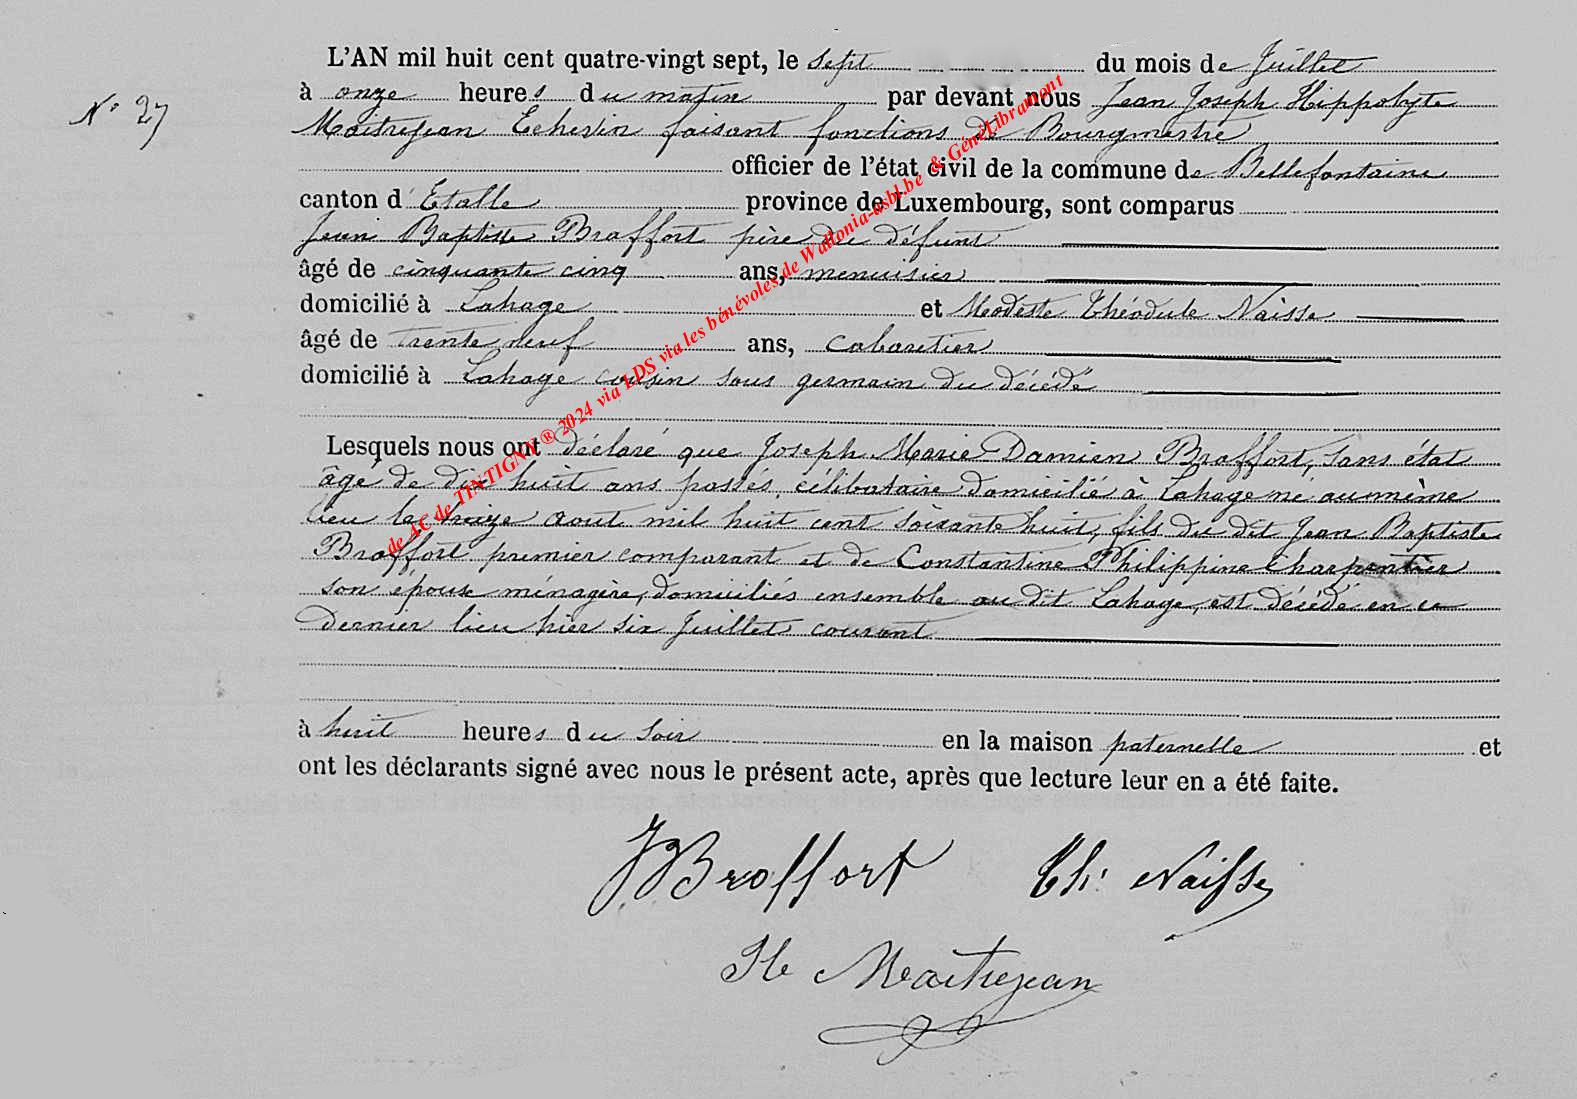 L'AN mil huit cent quatre-vingt sept, le sept du mois de Juillet
N° 27
à onze heures du matin par devant nous Jean Joseph Hippolyte
Maitrejean Echevin faisant fonctions de Bourgmestre
officier de l'état civil de la commune de Bellefontaine
canton d'Etalle province de Luxembourg, sont comparus
Jean Baptiste Braffort père du défunt
âgé de cinquante cinq ans, menuisier
domicilié à Lahage et Modeste Théodule Naisse
âgé de trente neuf ans, Cabaretier
domicilié à Lahage cousin sous germain du décédé
Lesquels nous ont déclaré que Joseph Marie Damien Braffort, sans état
âgé de dix huit ans passés, célibataire domicilié à Lahage né au même
lieu le treize aout mil huit cent soixante huit, fils du dit Jean Baptiste
Braffort premier comparant et de Constantine Philippine Charpentier
son épouse ménagère, domiciliés ensemble au dit Lahage, est décédé en ce
dernier lieu hier six Juillet courant
à huit heures du soir en la maison paternelle et
ont les déclarants signé avec nous le présent acte, après que lecture leur en a été faite.
JBraffort Th. Naisse
He Maitrejean
de AC de TINTIGNY ® 2024 via LDS via les bénévoles de Wallonia-asbl.be & GénéLibramont